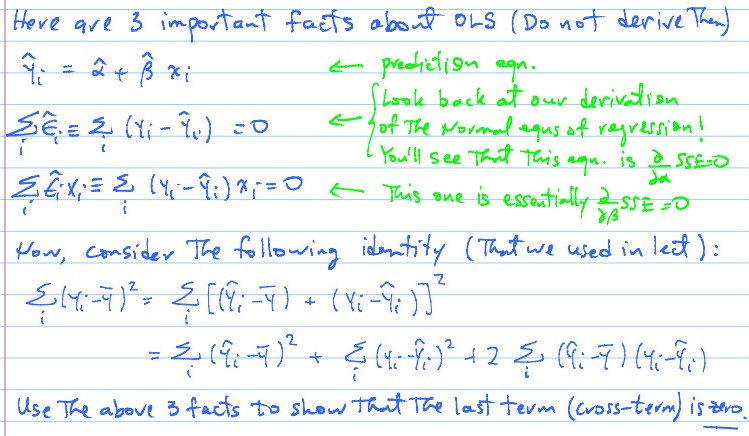 Here are 3 important facts about OLS (Do not derive Them)
ŷᵢ = α̂ + β̂ xᵢ ← prediction eqn.
Σᵢ ε̂ᵢ ≡ Σᵢ (yᵢ - ŷᵢ) = 0 ← { Look back at our derivation
of The Normal eqns of regression!
You'll see That This eqn. is ∂/∂α SSE=0
Σᵢ ε̂ᵢ xᵢ ≡ Σᵢ (yᵢ - ŷᵢ) xᵢ = 0 ← This one is essentially ∂/∂β SSE = 0
Now, consider The following identity (That we used in lect):
Σᵢ (yᵢ - ȳ)² = Σᵢ [(ŷᵢ - ȳ) + (yᵢ - ŷᵢ)]²
= Σᵢ (ŷᵢ - ȳ)² + Σᵢ (yᵢ - ŷᵢ)² + 2 Σᵢ (ŷᵢ - ȳ) (yᵢ - ŷᵢ)
Use The above 3 facts to show That The last term (cross-term) is zero.